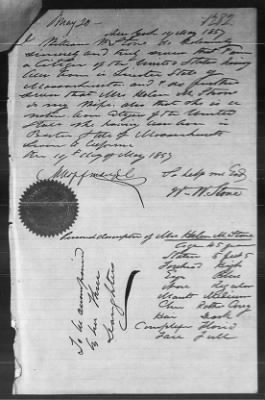 May 20 - 1282
New York 19 May 1857
I William W Stone do
and truly swear that I am
a Citizen of the United States having
been born in State of
Massachusetts and do also further
swear that Mrs Helen M Stone
is my Wife, also that she is a
native born Citizen of the United
States she having been born in
State of Massachusetts
Sworn to before
me 19th day of May 1857
So help me God
W. W. Stone
Personal description of Mrs Helen M Stone
Age 45 years
Stature 5 feet 5
Forehead High
Eyes Blue
Nose Regular
Mouth Medium
Chin
Hair Dark
Complexion Florid
Face Full
To be accompanied
by her three
Daughters